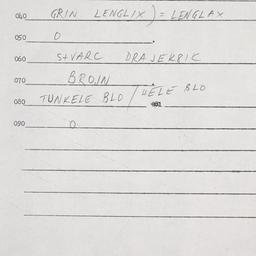 040 GRIN LENGLIX) = LENGLAX
050 0
060 STVARC DRAJEKRIC
070 BROIN
080 TUNKELE BLO / HELE BLO
081
090 0